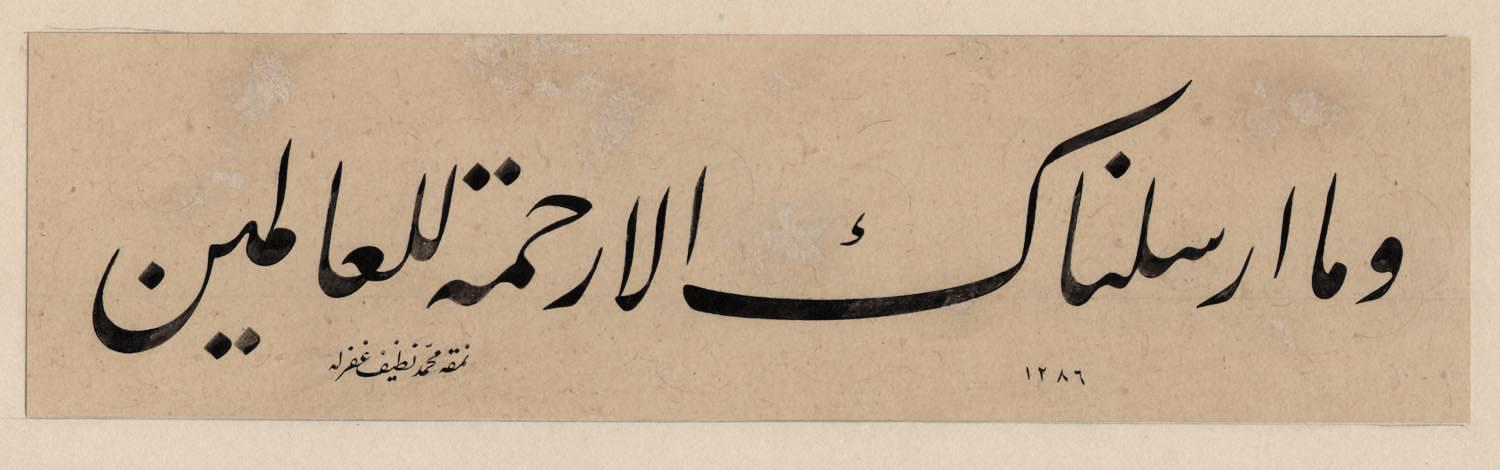 وما ارسلناك الا رحمة للعالمين
١٢٨٦
نمقه محمد نظيف غفرله